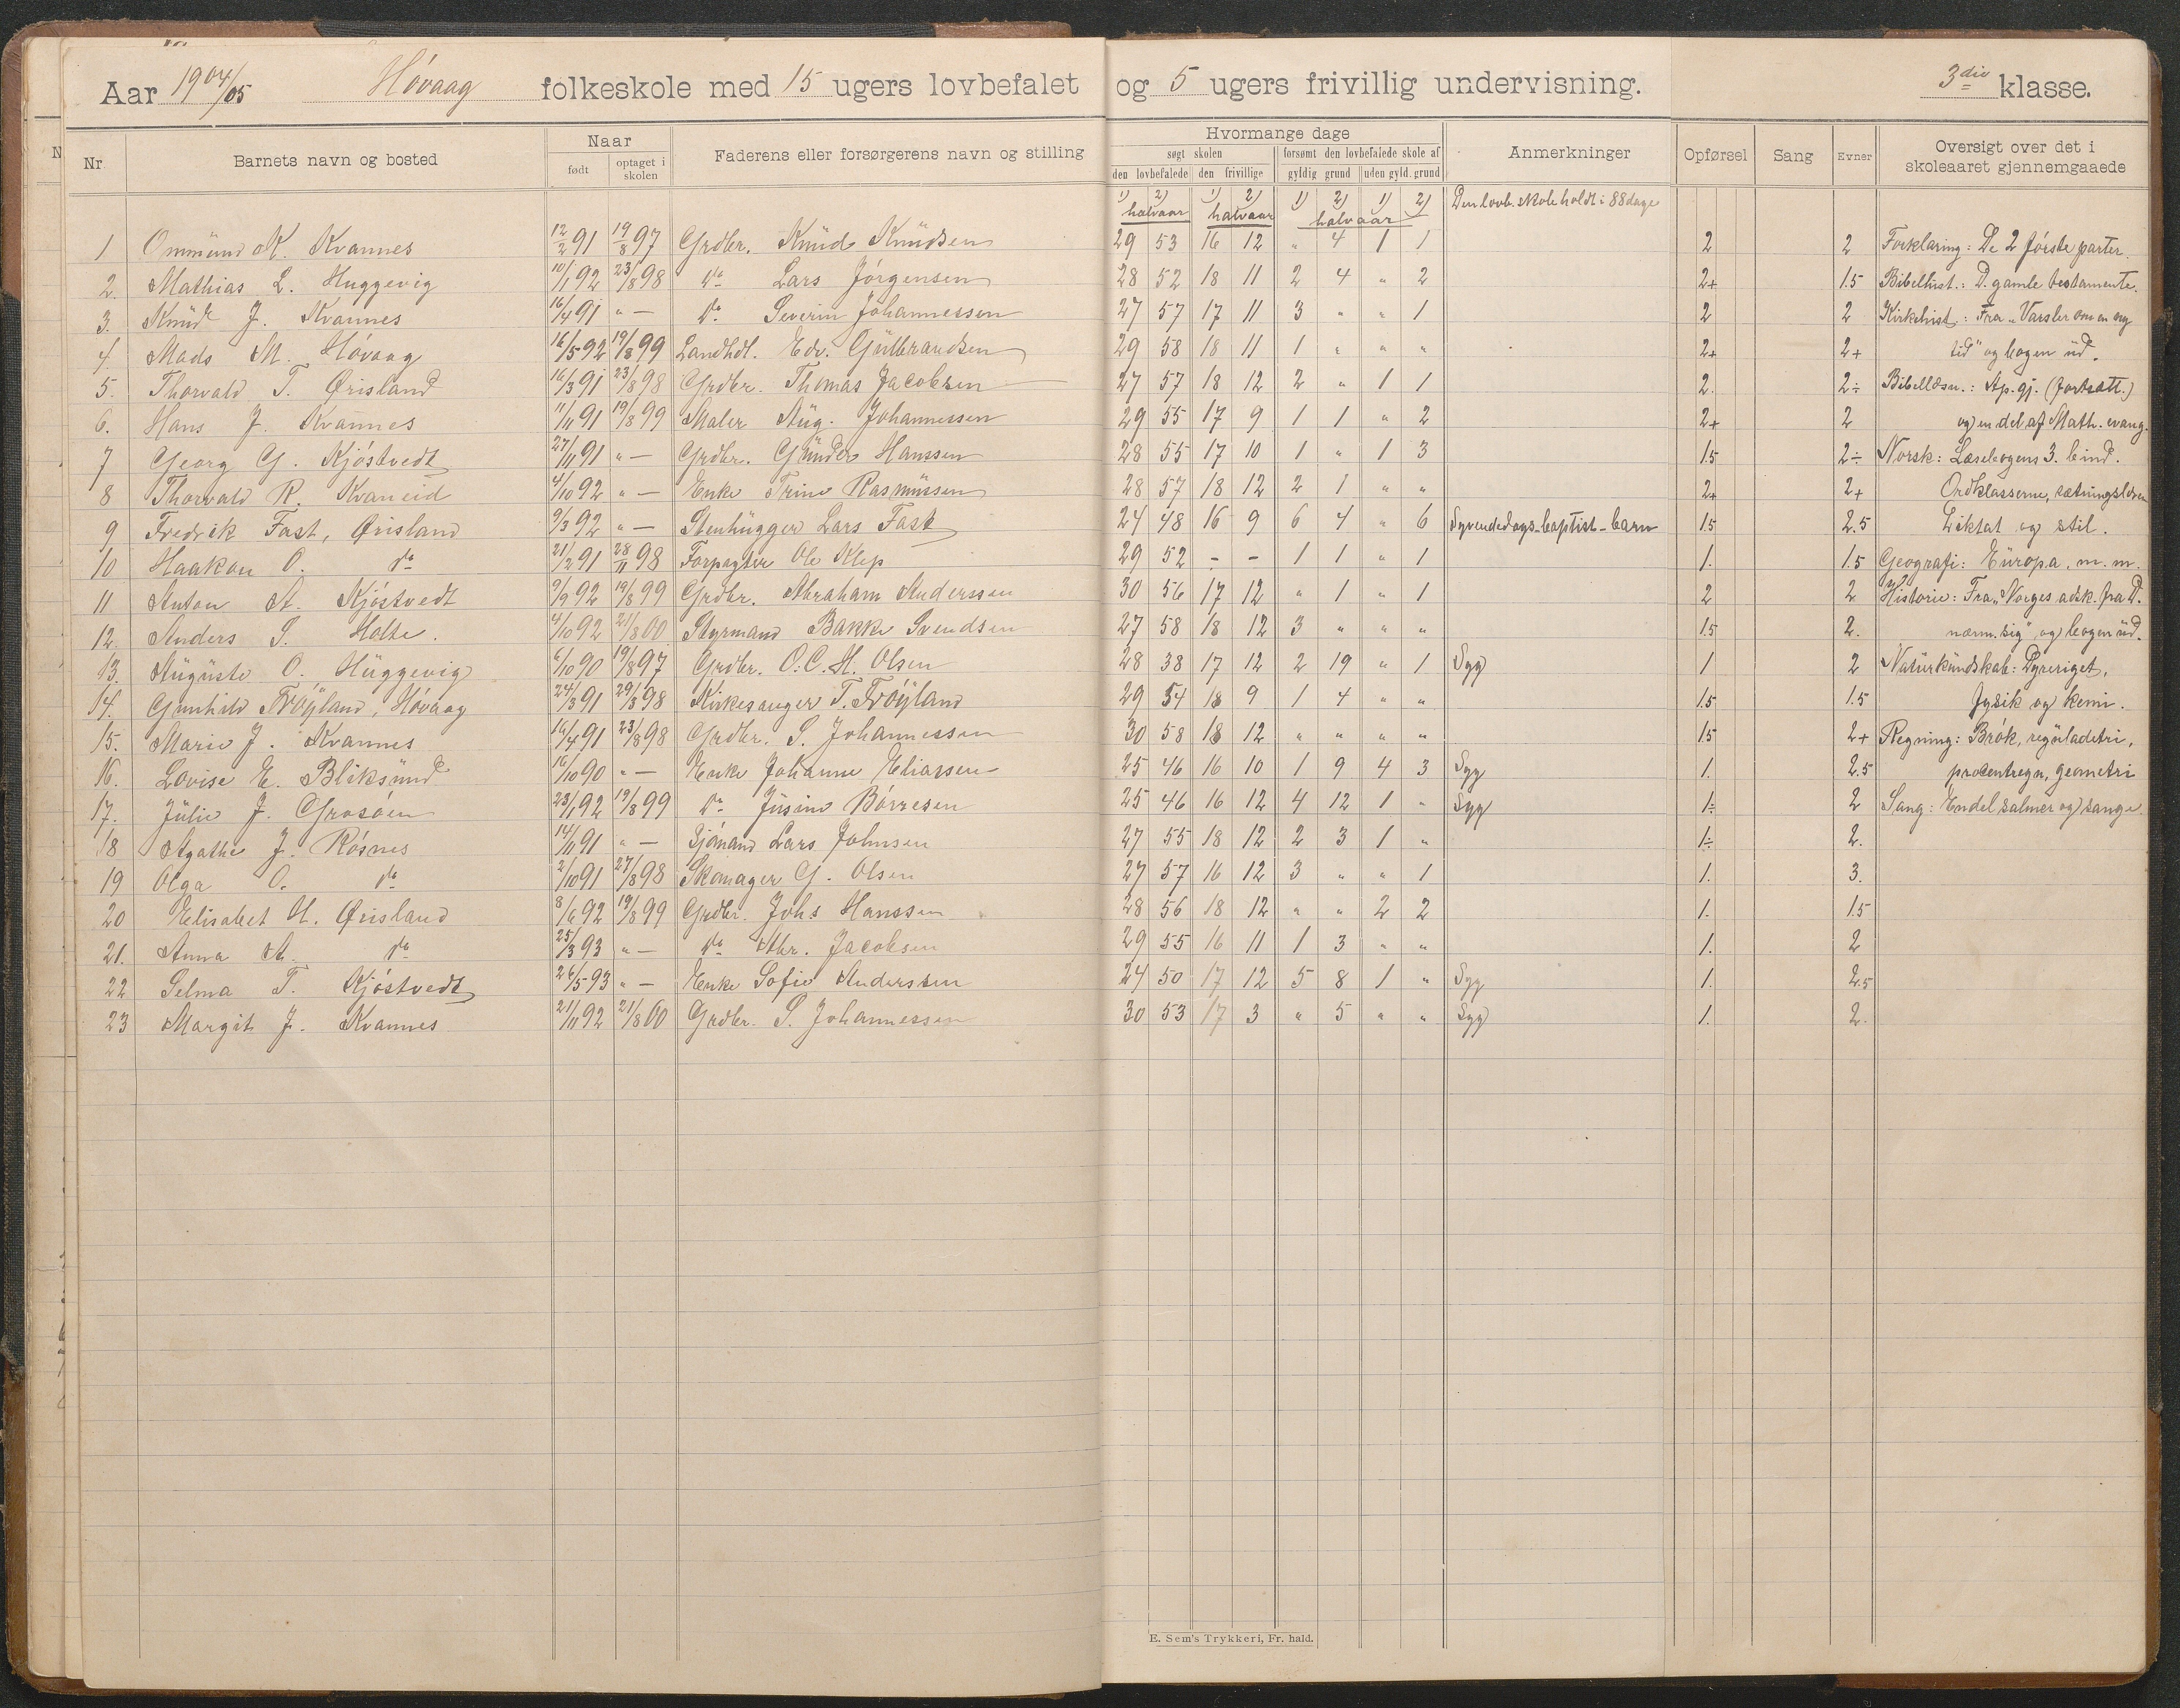 Aar 1904/05 Hóvaag folkeskole med 15 ugers lovbefalet og 5 ugers frivillig undervisning. 3die klasse.
Nr. Barnets navn og bosted Naar født optaget i skolen Faderens eller forsørgerens navn og stilling Hvormange dage søgt skolen den lovbefalede den frivillige forsømt den lovbefalede skole af gyldig grund uden gyld. grund Anmerkninger Opførsel Sang Evner Oversigt over det i skoleaaret gjennemgaaede
1) 2) halvaar 1) 2) halvaar 1) 2) 1) 2) halvaar Den lovb. skole holdt i 88 dage
1 Ommund K. Kvannes 12/2 91 19/8 97 Grdbr. Knud Knudsen 29 53 16 12 " 4 1 1 2 2 Forklaring: De 2 første parter.
2. Mathias L. Huggevig 10/1 92 23/8 98 do Lars Jörgensen 28 52 18 11 2 4 " 2 2+ 1.5 Bibelhist.: D. gamle testamente.
3. Knud J. Kvannes 16/4 91 " — do Severin Johannessen 27 57 17 11 3 " " 1 2 2 Kirkehist.: Fra "Varsler om en ny
4. Mads M. Hóvaag 16/5 92 19/8 99 Landhdl. Edv. Gulbrandsen 29 58 18 11 1 " " " 2+ 2+ tid" og bogen ud.
5. Thorvald T. Ørisland 16/3 91 23/8 98 Grdbr. Thomas Jacobsen 27 57 18 12 2 " 1 1 2. 2÷ Bibellæsn.: Ap. gj. (fortsatt.)
6. Hans J. Kvannes 11/11 91 19/8 99 Maler Aug. Johannessen 29 55 17 9 1 1 " 2 2+ 2 og en del af Math. evang.
7 Georg G. Kjóstvedt 27/11 91 " — Grdbr. Gunder Hanssen 28 55 17 10 1 " 1 3 1.5 2÷ Norsk: Læsebogens 3. bind.
8 Thorvald R. Kvaneid 4/10 92 " — Enke Trine Rasmussen 28 57 18 12 2 1 " " 2+ 2+ Ordklasserne, sætningslæren
9 Fredrik Fast, Ørisland 9/3 92 " — Stenhugger Lars Fast 24 48 16 9 6 4 " 6 Syvendedags-baptist-barn 1.5 2.5 Diktat og stil.
10 Haakon O. do 21/2 91 28/11 98 Forpagter Ole Klep 29 52 - - 1 1 " 1 1. 1.5 Geografi: Europa, m. m.
11 Anton A. Kjóstvedt 9/9 92 19/8 99 Grdbr. Abraham Anderssen 30 56 17 12 " 1 " 1 2 2 Historie: Fra "Norges adsk. fra D.
12. Anders S. Holte. 4/10 92 21/8 00 Styrmand Bakke Svendsen 27 58 18 12 3 " " " 1.5 2. nærm. sig", og bogen ud.
13. Auguste O. Huggevig 6/10 90 19/8 97 Grdbr. O. C. H. Olsen 28 38 17 12 2 19 " 1 Syg 1 2 Naturkundskab: Dyreriget,
14. Gunhild Tróyland, Hóvaag 24/3 91 29/8 98 Kirkesanger T. Tróyland 29 54 18 9 1 4 " " 1.5 1.5 fysik og kemi.
15. Marie J. Kvannes 16/4 91 23/8 98 Grdbr. S. Johannessen 30 58 18 12 " " " " 1.5 2+ Regning: Brók, reguladetri,
16. Lovise E. Bliksund 16/10 90 " — Enke Johanne Eliassen 25 46 16 10 1 9 4 3 Syg 1. 2.5 procentregn, geometri
17. Julie J. Grosóen 23/1 92 19/8 99 do Jusine Börresen 25 46 16 12 4 12 1 " Syg 1÷ 2 Sang: Endel salmer og sange.
18 Agathe J. Rósnes 14/11 91 " — Sjómand Lars Johnsen 27 55 18 12 2 3 1 " 1÷ 2.
19 Olga O. do 2/10 91 27/8 98 Skomager G. Olsen 27 57 16 12 3 " " 1 1. 3.
20 Elisabet H. Ørisland 8/6 92 19/8 99 Grdbr. Johs Hanssen 28 56 18 12 " " 2 2 1. 1.5
21. Anna A. do 25/3 93 " — do Abr. Jacobsen 29 55 16 11 1 3 " " 1. 2
22 Selma T. Kjóstvedt 26/5 93 " — Enke Sofie Anderssen 24 50 17 12 5 8 1 " Syg 1. 2.5
23 Margit J. Kvannes 21/11 92 21/8 00 Grdbr. S. Johannessen 30 53 17 3 " 5 " " Syg 1. 2.
E. Sem's Trykkeri, Fr. hald.